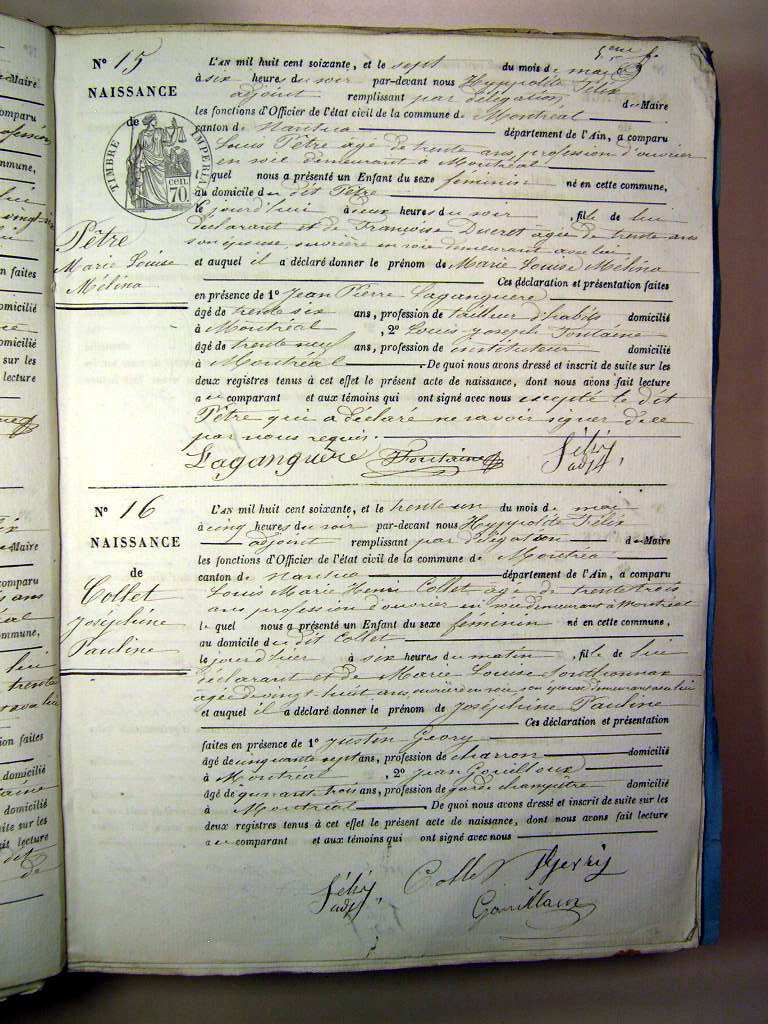 5eme
N° 15
NAISSANCE
de
TIMBRE IMPERIAL
70. cen.
Pêtre
Marie Louise
Mélina
L'AN mil huit cent soixante, et le sept du mois de mai
à six heures du soir par-devant nous Hyppolite Félix
adjoint remplissant par délégation de Maire
les fonctions d'Officier de l'état civil de la commune de Montréal
canton de Nantua département de l'Ain, a comparu
Louis Pêtre âgé de trente ans, profession d'ouvrier
en soie demeurant à Montréal
lequel nous a présenté un Enfant du sexe féminin né en cette commune,
au domicile du dit Pêtre
le jourd'hui à deux heures du soir, fille de lui
déclarant et de Françoise Ducret agée de trente ans
son épouse, ouvrière en soie demeurant avec lui
et auquel il a déclaré donner le prénom de Marie Louise Mélina
Ces déclaration et présentation faites
en présence de 1° Jean Pierre Laganguère
âgé de trente six ans, profession de tailleur d'habits domicilié
à Montréal, 2° Louis Joseph Fontaine
âgé de trente neuf ans, profession de instituteur domicilié
à Montréal. De quoi nous avons dressé et inscrit de suite sur les
deux registres tenus à cet effet le présent acte de naissance, dont nous avons fait lecture
au comparant et aux témoins qui ont signé avec nous excepté le dit
Pêtre qui a déclaré ne savoir signer de ce
par nous requis.
Laganguère Fontaine Félix
adjt
N° 16
NAISSANCE
de
Collet
Joséphine
Pauline
L'AN mil huit cent soixante, et le trente un du mois de mai
à cinq heures du soir par-devant nous Hyppolite Félix
adjoint remplissant par délégation de Maire
les fonctions d'Officier de l'état civil de la commune de Montréal
canton de Nantua département de l'Ain, a comparu
Louis Marie Henri Collet âgé de trente trois
ans profession d'ouvrier en soie demeurant à Montréal
lequel nous a présenté un Enfant du sexe féminin né en cette commune,
au domicile du dit Collet
le jour d'hier à six heures du matin, fille de lui
déclarant et de Marie Louise
agée de vingt huit ans, ouvrière en soie, son épouse demeurant avec lui
et auquel il a déclaré donner le prénom de Joséphine Pauline
Ces déclaration et présentation
faites en présence de 1° Justin Geory
âgé de cinquante sept ans, profession de charron domicilié
à Montréal, 2° Jean Gouilloux
âgé de quarante trois ans, profession de garde champêtre domicilié
à Montréal. De quoi nous avons dressé et inscrit de suite sur les
deux registres tenus à cet effet le présent acte de naissance, dont nous avons fait lecture
au comparant et aux témoins qui ont signé avec nous
Félix Collet
adjt